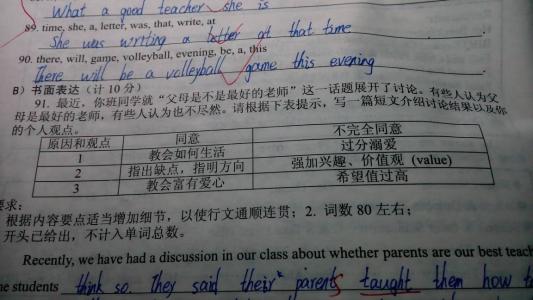 What a good teacher she is
89. time, she, a, letter, was, that, write, at
She was writing a letter at that time.
90. there, will, game, volleyball, evening, be, a, this
There will be a volleyball game this evening.
B）书面表达（计 10 分）
91. 最近，你班同学就“父母是不是最好的老师”这一话题展开了讨论。有些人认为父
母是最好的老师，有些人认为也不尽然。请根据下表提示，写一篇短文介绍讨论结果以及你
的个人观点。
原因和观点 同意 不完全同意
1 教会如何生活 过分溺爱
2 指出缺点，指明方向 强加兴趣、价值观（value）
3 教会富有爱心 希望值过高
要求：
根据内容要点适当增加细节，以使行文通顺连贯；2. 词数 80 左右；
开头已给出，不计入单词总数。
Recently, we have had a discussion in our class about whether parents are our best teach
e students think so. They said their parents taught them how t